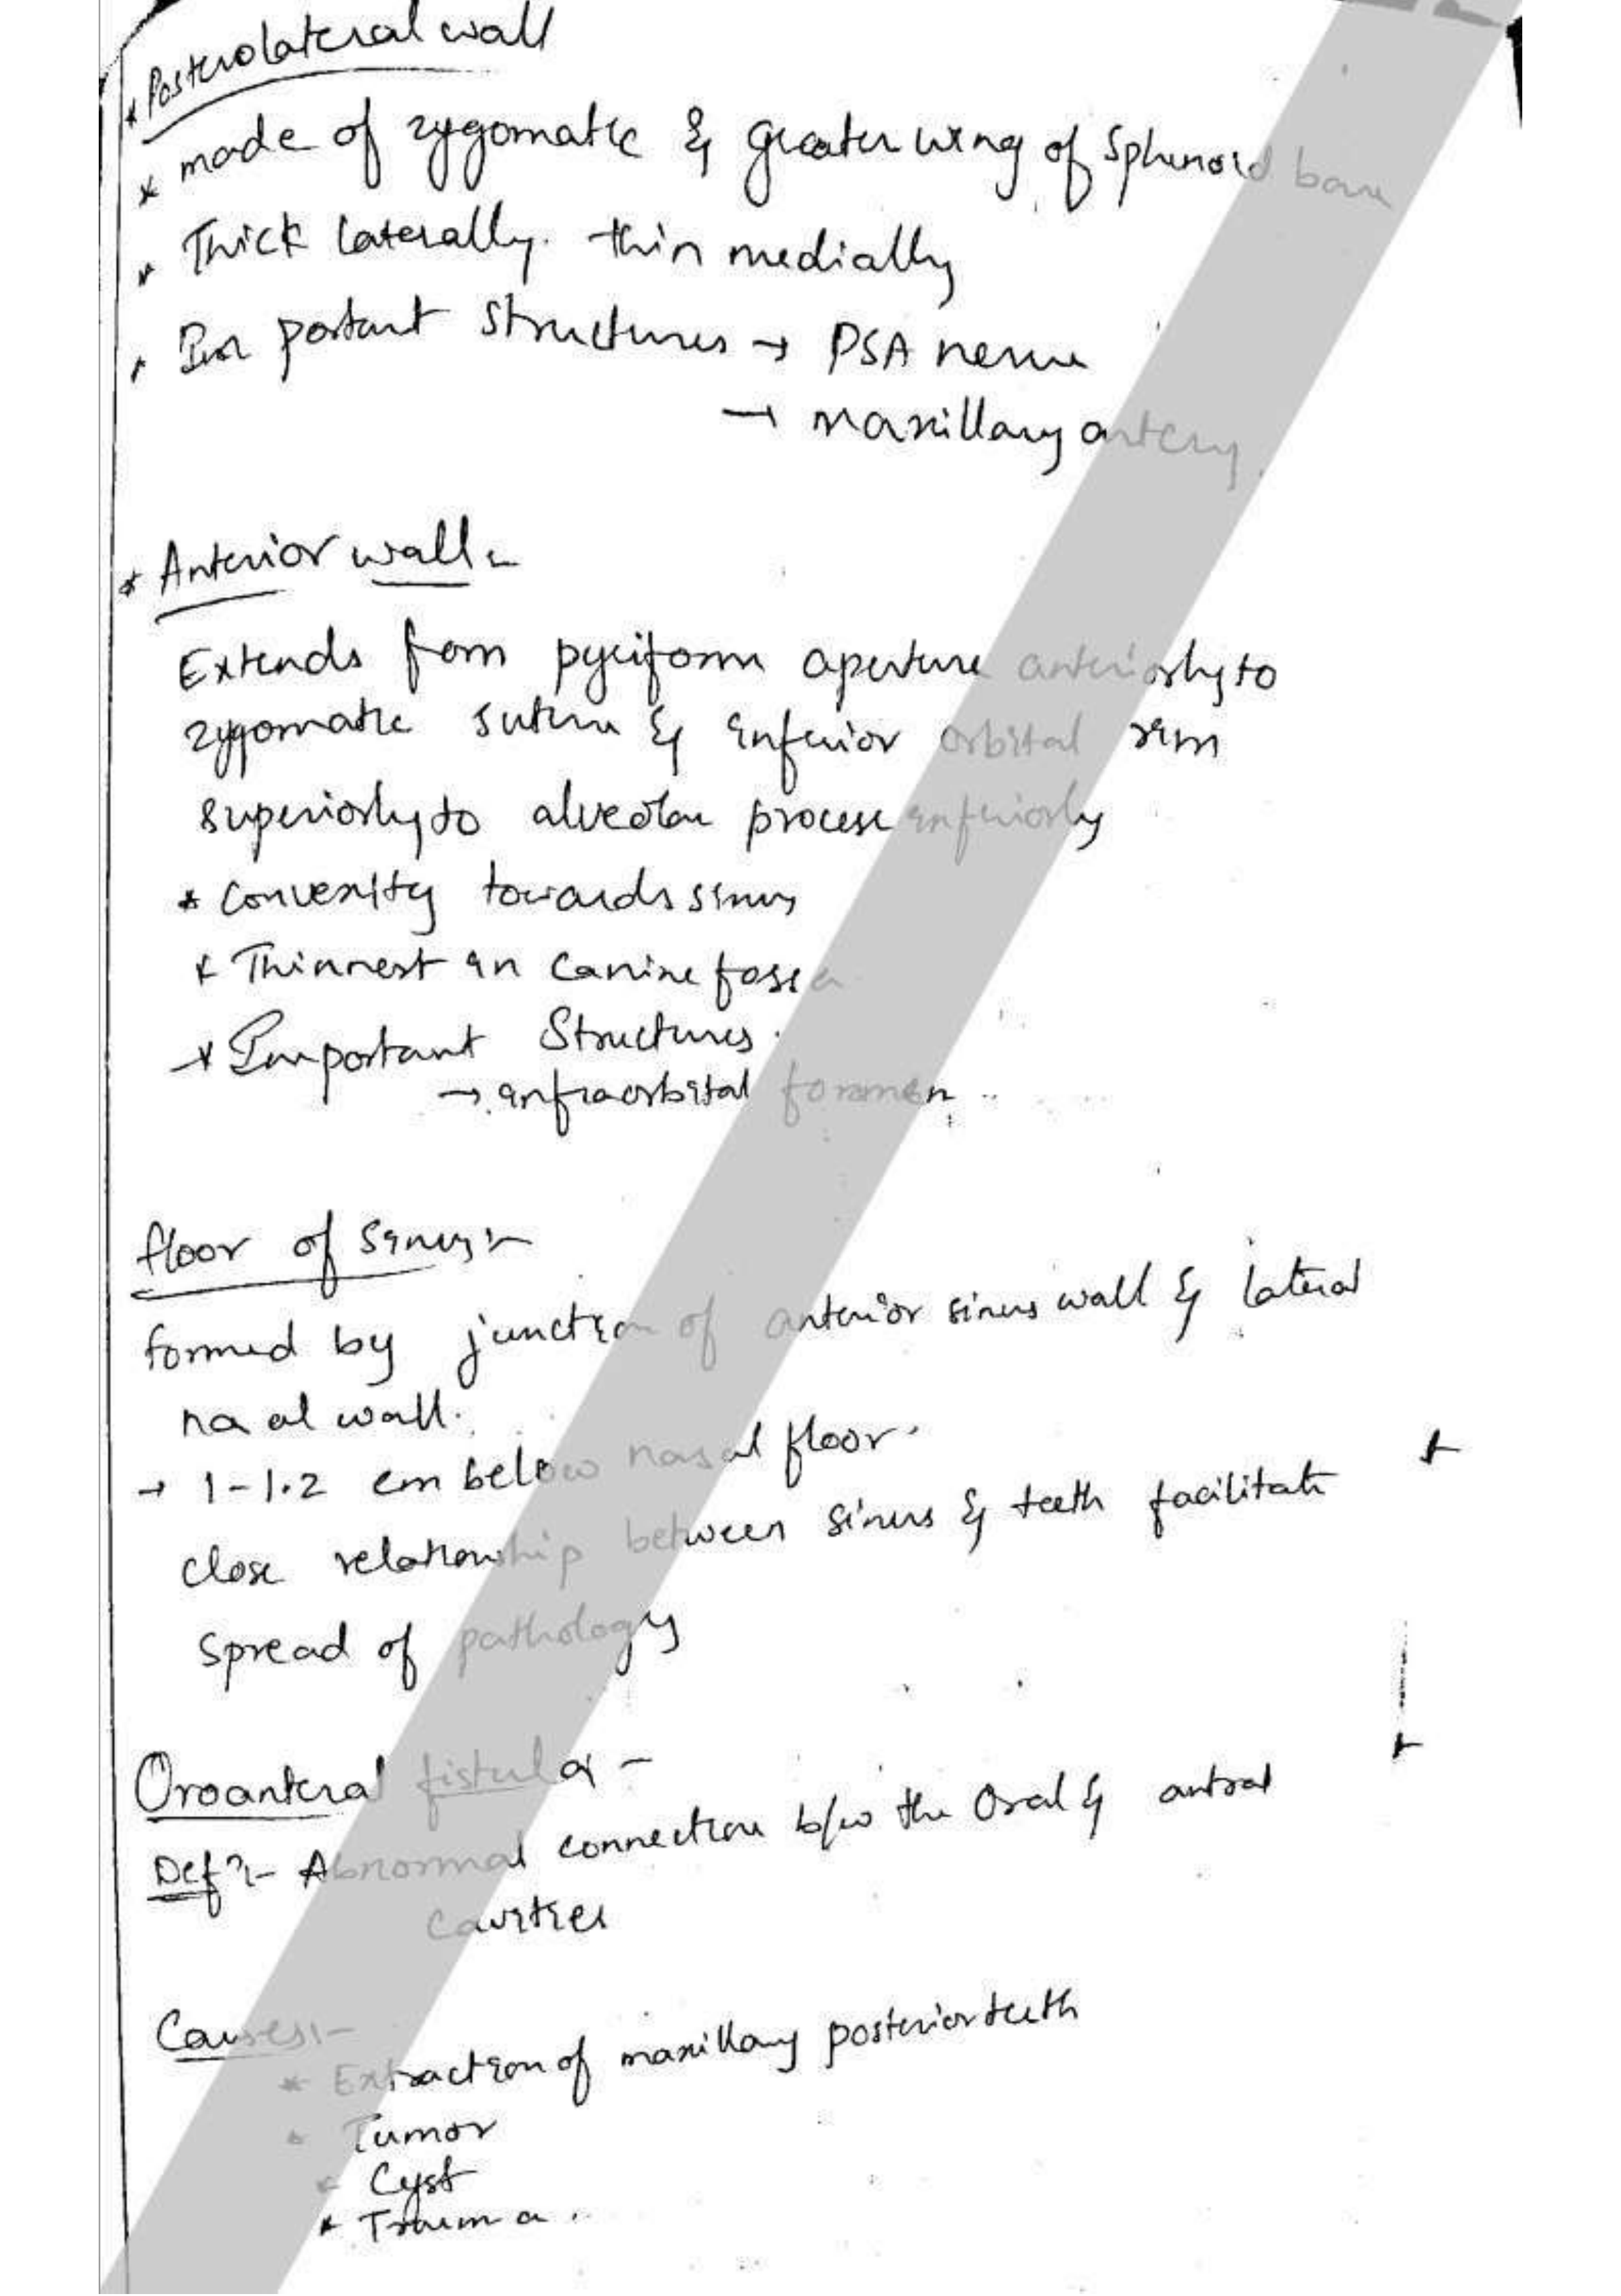 * Posterolateral wall
* made of zygomatic & greater wing of Sphenoid bone
* Thick laterally. thin medially
* Important Structures → PSA nerve
→ maxillary artery.
* Anterior wall :-
Extends from pyriform aperture anteriorly to
zygomatic suture & inferior orbital rim
superiorly to alveolar process inferiorly
* Convexity towards sinus
* Thinnest in Canine fossa
* Important Structures.
→ infraorbital foramen
floor of Sinus :-
formed by junction of anterior sinus wall & lateral
na al wall.
→ 1-1.2 cm below nasal floor.
close relationship between sinus & teeth facilitate
spread of pathology
Oroanteral fistula -
Defn:- Abnormal connection b/w the Oral & antral
cavities
Causes:-
* Extraction of maxillary posterior teeth
* Tumor
* Cyst
* Trauma.